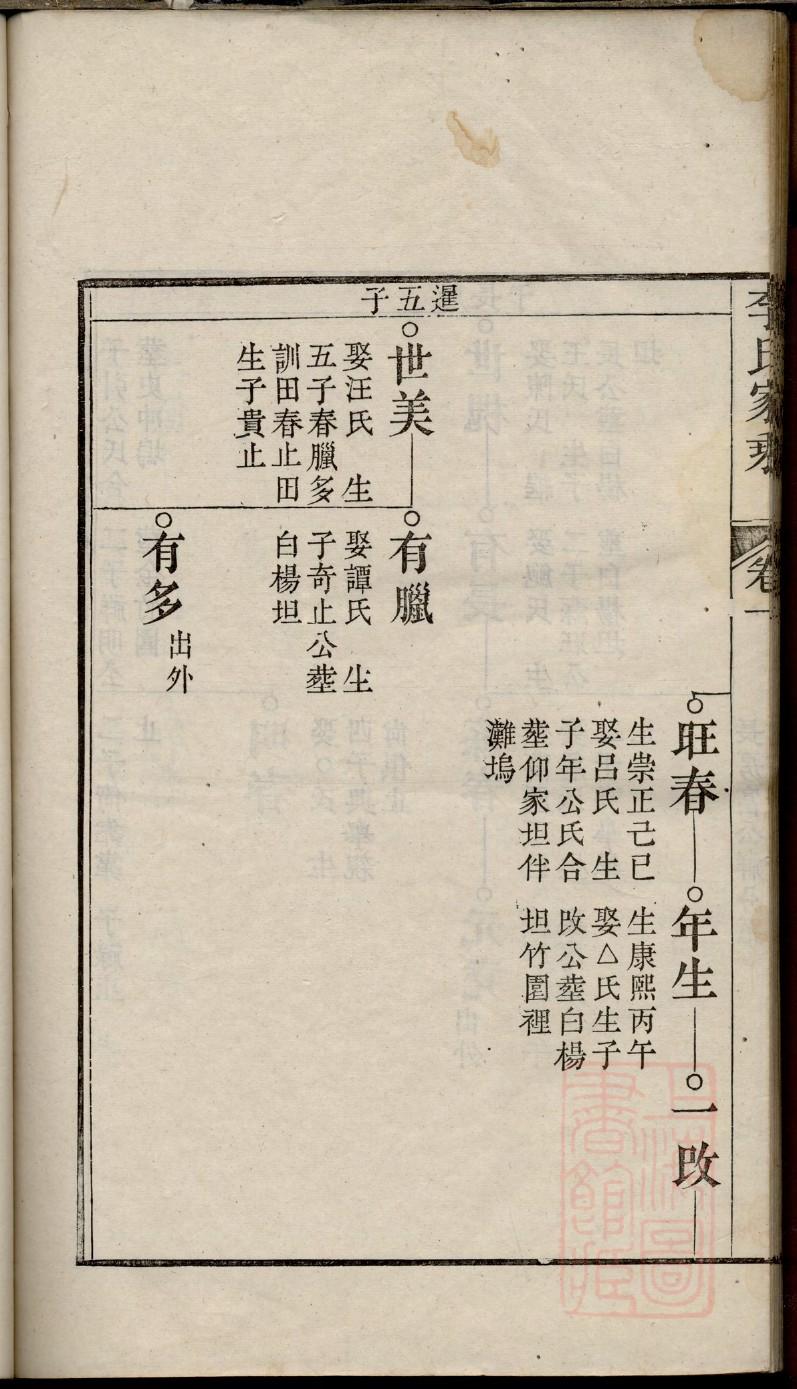 李氏家乘
卷一
旺春
生崇正己巳
娶呂氏 生
子年公氏合
塟仰家坦伴
灘塢
年生
生康熙丙午
娶△氏生子
改公塟白楊
坦竹園裡
一改
暹五子
世美
娶汪氏 生
五子春臘多
訓田春止田
生子貴止
有臘
娶譚氏 生
子奇止公塟
白楊坦
有多
出外